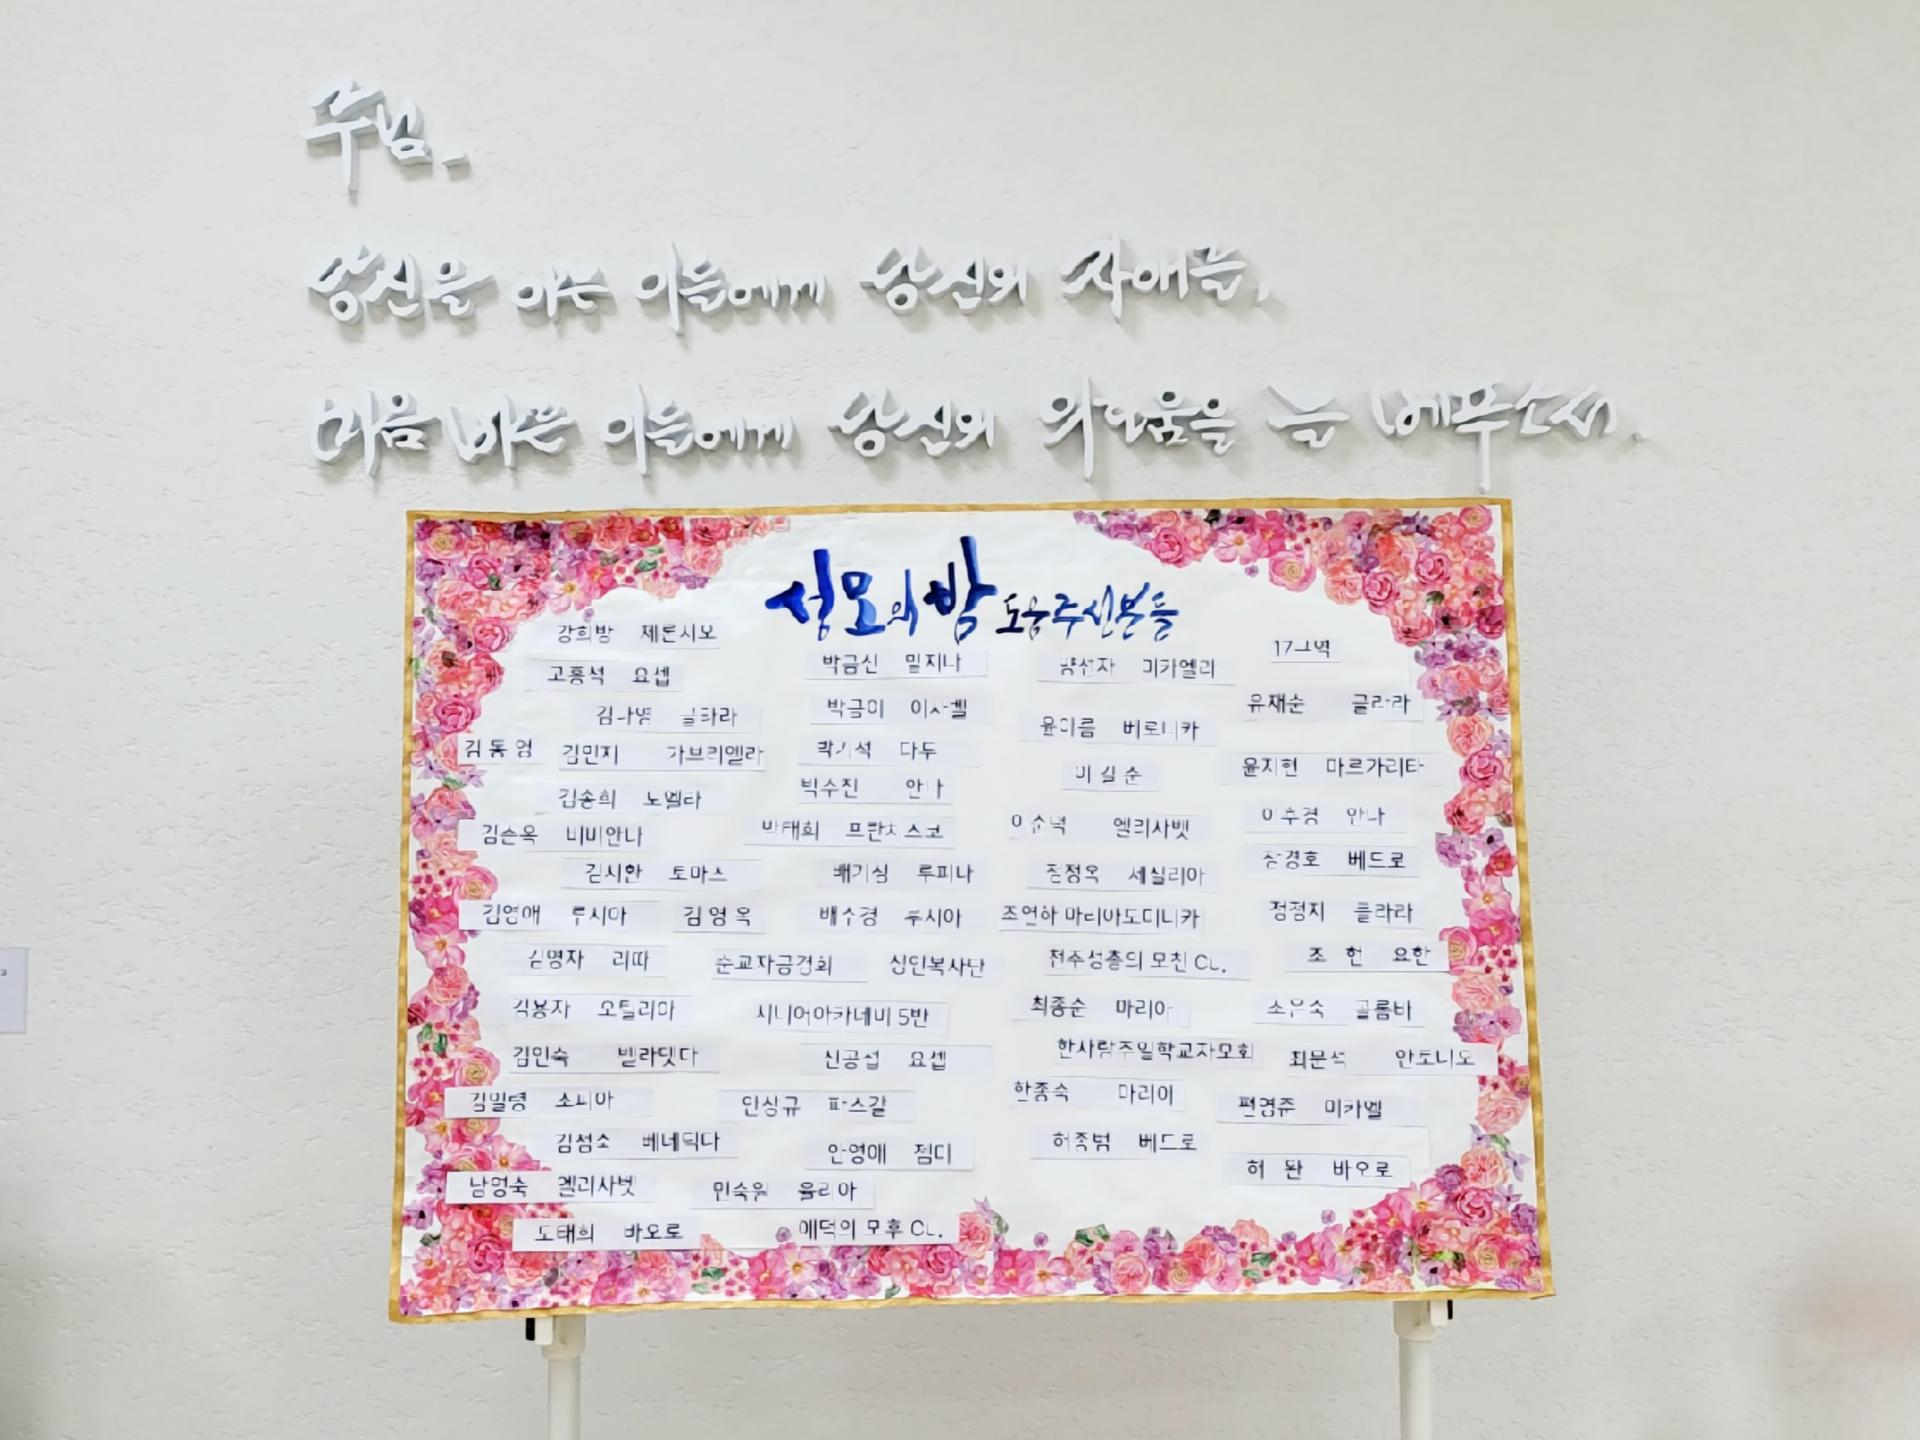 주님,
당신을 아는 이들에게 당신의 자애를,
마음 바른 이들에게 당신의 의로움을 늘 베푸소서.
성모의 밤 도움주신분들
강희방 제론시오
고흥석 요셉
김나영 글라라
김동영 김민지 가브리엘라
김송희 노엘라
김순옥 비비안나
김시환 토마스
김영애 루시아 김영옥
김영자 리따
김용자 오틸리아
김인숙 벨라뎃다
소피아
김점소 베네딕다
남영숙 엘리사벳
도태희 바오로
박금신
박금이 이사벨
박기석 다두
박수진 안나
박태희 프란치스코
배기싱 루피나
배수경 루시아
순교자공경회 성인복사단
시니어아카데미 5반
신공섭 요셉
안상규 파스갈
안영애 젬마
민숙원 율리아
애덕의 모후 CL.
양선자 미카엘라
윤아름 베로니카
이길순
이순덕 엘리사벳
장정옥 세실리아
조연하 마리아도미니카
천주성총의 모친 CL.
최종순 마리아
한사랑주일학교자모회
한종숙 마리아
허종범 베드로
17구역
유재순 글라라
윤지현 마르가리타
이수경 안나
장경호 베드로
정정지 클라라
조 헌 요한
소은숙 골롬바
최문석 안토니오
편영준 미카엘
허 완 바오로